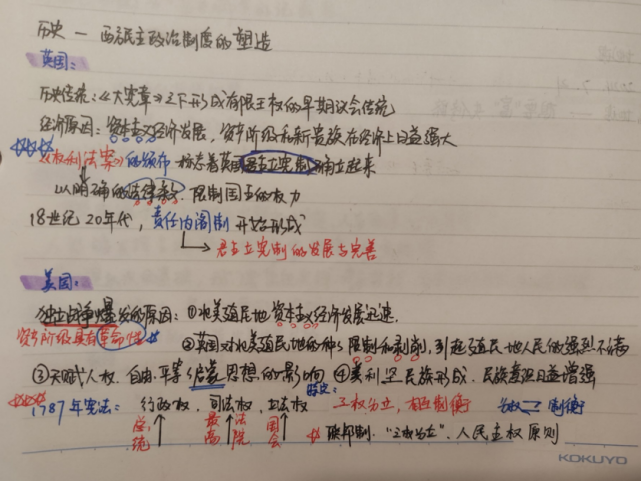 历史 — 西方民主政治制度的塑造
英国：
历史传统：《大宪章》之下形成有限王权的早期议会传统
经济原因：资本主义经济发展，资产阶级和新贵族在经济上日益强大
《权利法案》的颁布 标志着英国君主立宪制确立起来
以明确的法律条文，限制国王的权力
18世纪20年代，责任内阁制 开始形成
君主立宪制的发展与完善
美国：
独立战争爆发的原因：①北美殖民地资本主义经济发展迅速．
资产阶级具有革命性
②英国对北美殖民地的种种限制和剥削，引起殖民地人民的强烈不满
③天赋人权．自由．平等 启蒙思想的影响 ④美利坚民族形成．民族意识日益增强
1787年宪法：行政权，司法权，立法权 三权分立，相互制衡 分权 制衡
总统 最高法院 国会 联邦制．“三权分立”．人民主权原则
KOKUYO